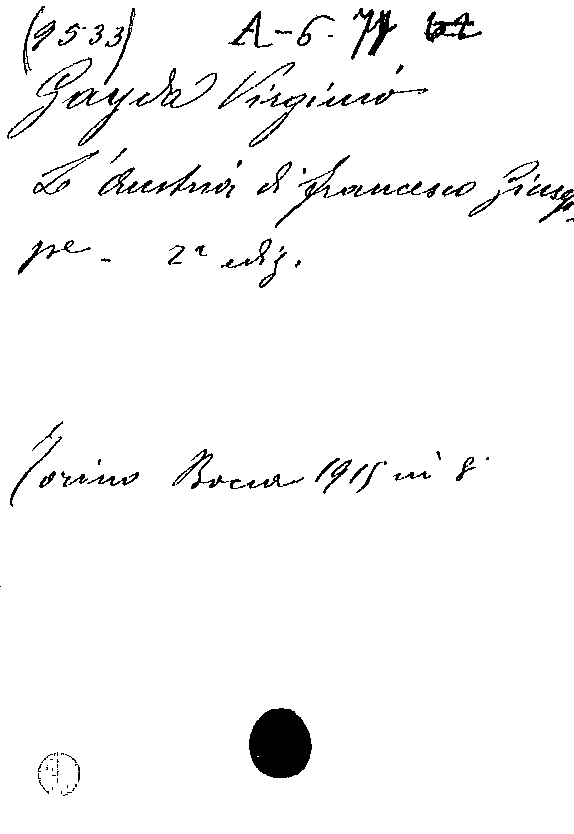 (9533) A-6. 77
Gayda Virginio
L'Austria di francesco Giusep
pe - 2ª ediz.
Torino Bocca 1915 in 8°